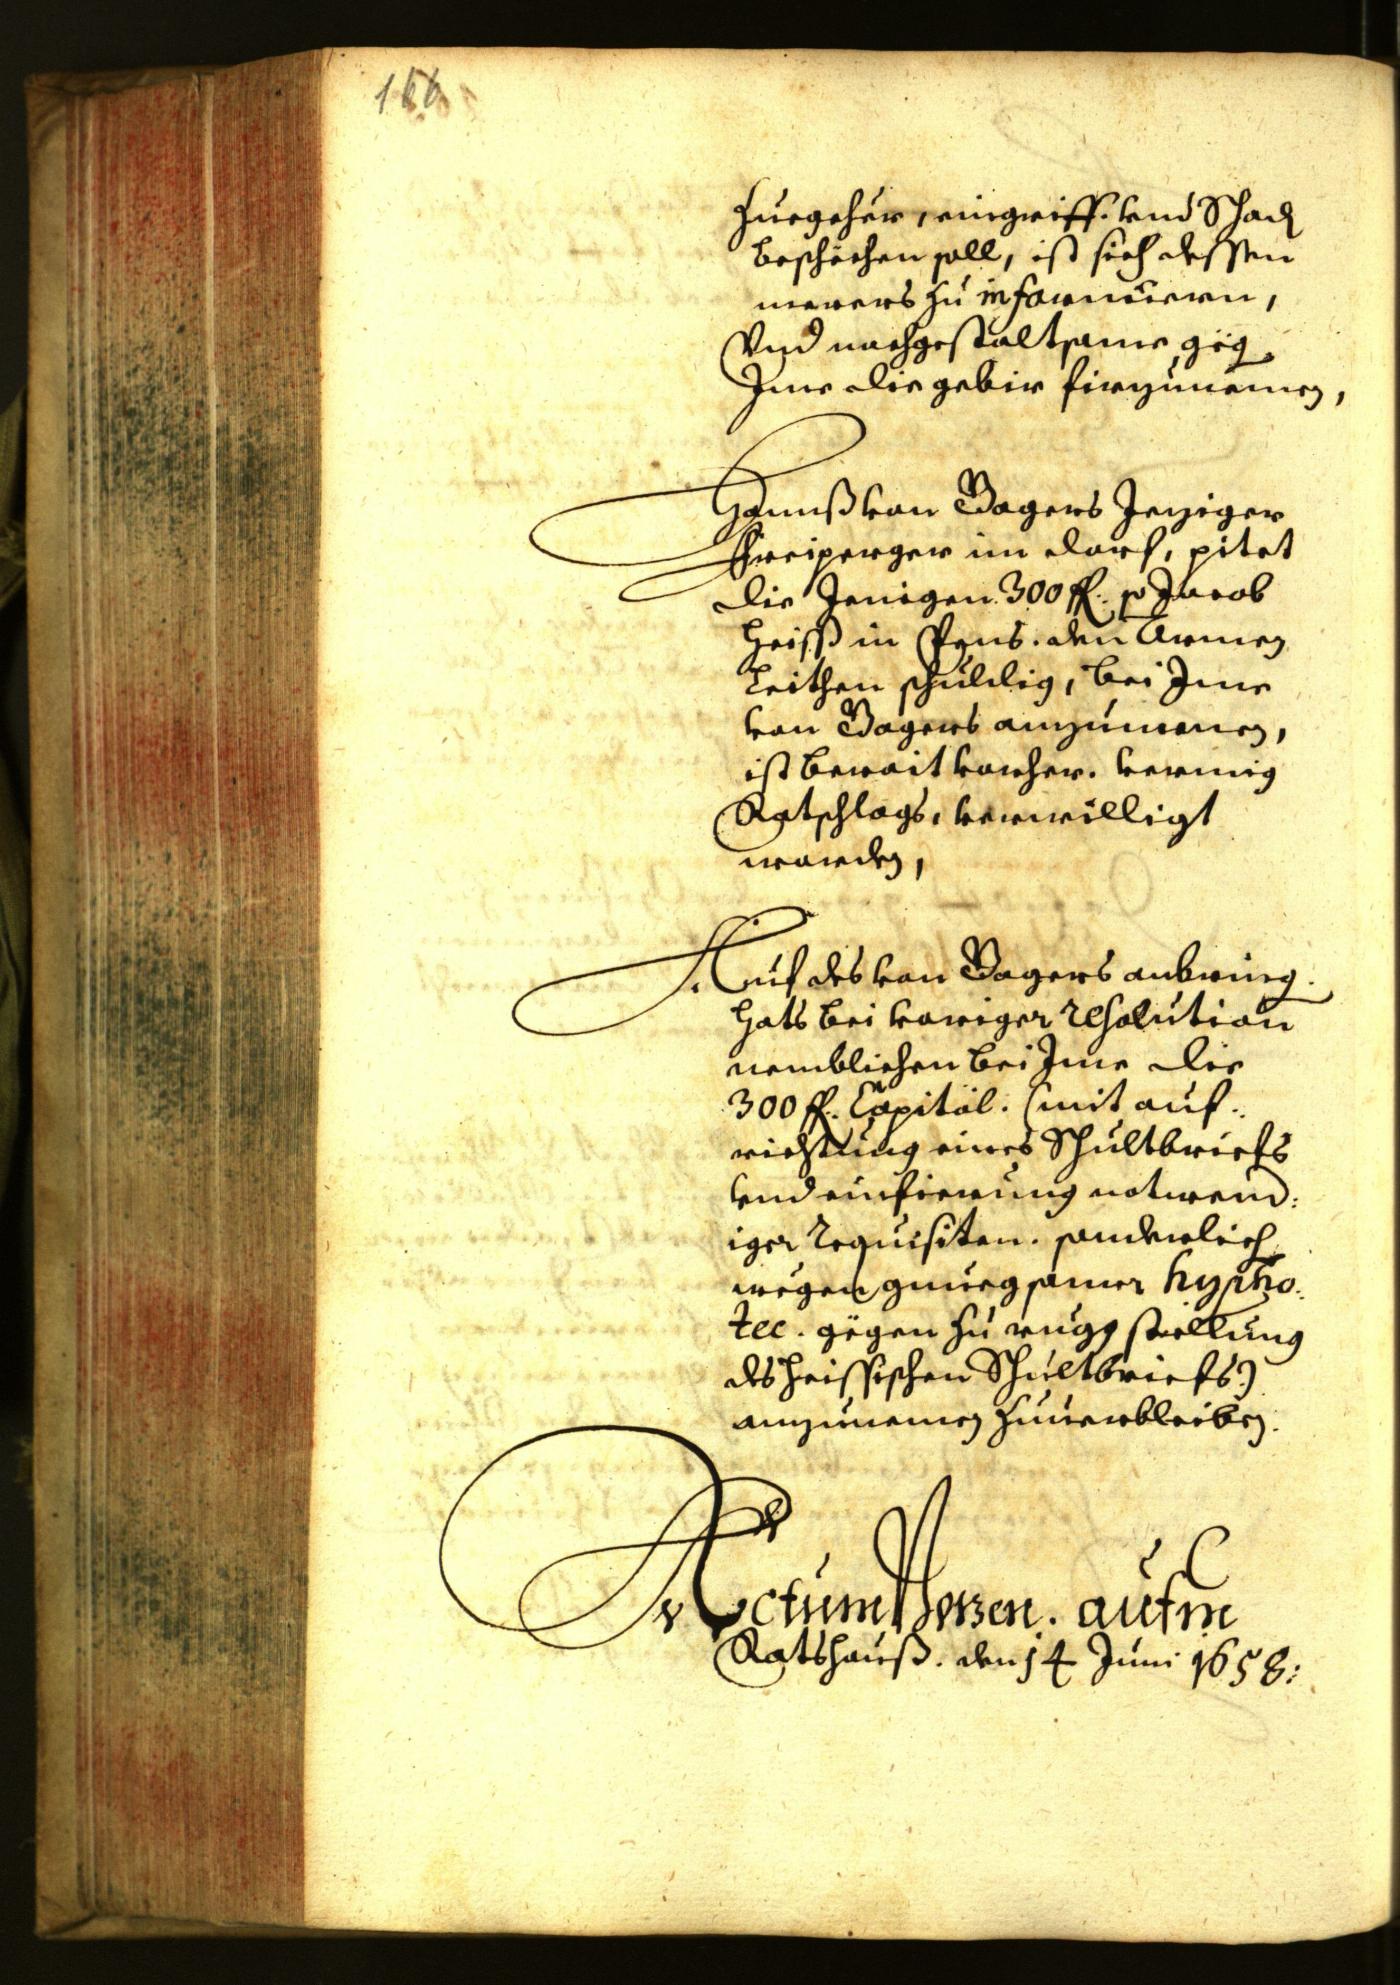 166
Zuegehür, eingriff. vnd Schad
beschëchen soll, ist sich dessen
merers zu informiern,
Vnd nachgestaltsame gëg.
Jme die gebir firzunemen,
Hannß von Vagers Jeziger
Greiperger im dorf, pitet
die Jenigen 300 fl. so Jacob
Heiss in Pens. den Armen
Leithen schuldig, bei Jme
von Vagers anzunemen,
ist berait vorher. vermig
Ratschlags, verwilligt
worden,
Auf des von Vagers anbring.
hats bei voriger resolution
nemblichen bei Jme die
300 fl. Capital. (mit auf-
richtung eines Schultbriefs
vnd einfierung notwend:
iger requisiten. sonderlich
wegen gnuegsamer hypho:
tec. gëgen zu rugg stellung
des Heissischen Schultbriefs)
anzunemen zuuerbleiben.
Actum Stertzen. aufm
Ratshauß. den 14 Juni 1658: